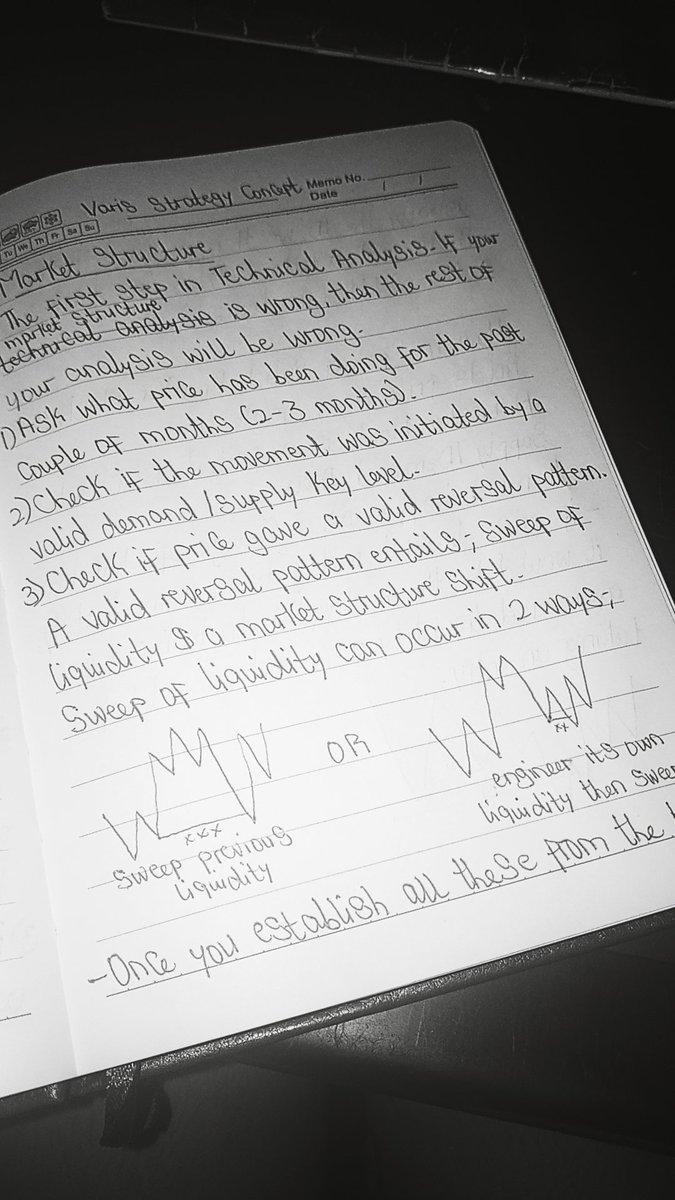 Varis Strategy Concept
Memo No.
Date / /
Tu We Th Fr Sa Su
Market Structure
The first step in Technical Analysis. If your
market structure
technical analysis is wrong, then the rest of
your analysis will be wrong.
1) Ask what price has been doing for the past
couple of months (2-3 months).
2) Check if the movement was initiated by a
valid demand/supply key level.
3) Check if price gave a valid reversal pattern.
A valid reversal pattern entails; Sweep of
liquidity & a market structure shift.
Sweep of liquidity can occur in 2 ways;
OR
xxx
xx
sweep previous
liquidity
engineer its own
liquidity then swee
- Once you establish all these from the